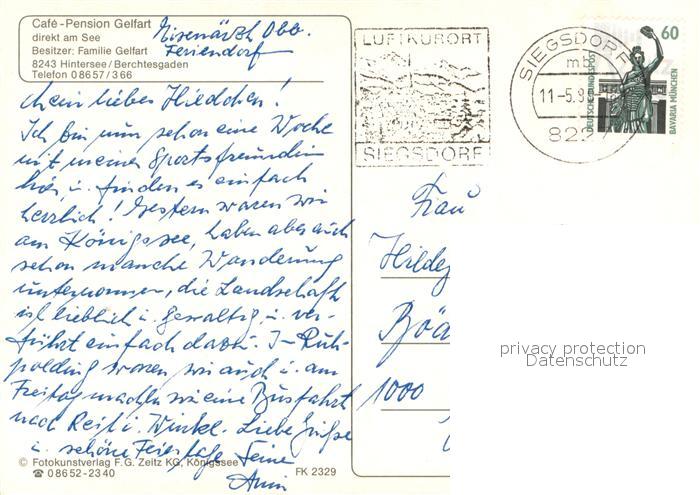 Café-Pension Gelfart
direkt am See
Besitzer: Familie Gelfart
8243 Hintersee/Berchtesgaden
Telefon 0 86 57 / 3 66
Obb.
Feriendorf
Mein liebes Hildchen!
Ich bin nun schon eine Woche
mit meiner Sportsfreundin
hier u. finden es einfach
herrlich! Gestern waren wir
am Königssee, haben aber auch
schon manche Wanderung
unternommen, die Landschaft
ist lieblich u. gewaltig, u. ver-
führt einfach dazu. In Ruh-
polding waren wir auch u. am
Freitag machen wir eine Busfahrt
nach Reit i. Winkel. Liebe Grüße
u. schöne Feiertage Deine
© Fotokunstverlag F. G. Zeitz KG, Königssee
☎ 0 86 52-23 40
FK 2329
LUFTKURORT
SIEGSDORF
SIEGSDORF
mb
11-5.8
822
60
DEUTSCHE BUNDESPOST
BAVARIA MÜNCHEN
Frau
Hildeg
Böd
1000
privacy protection
Datenschutz